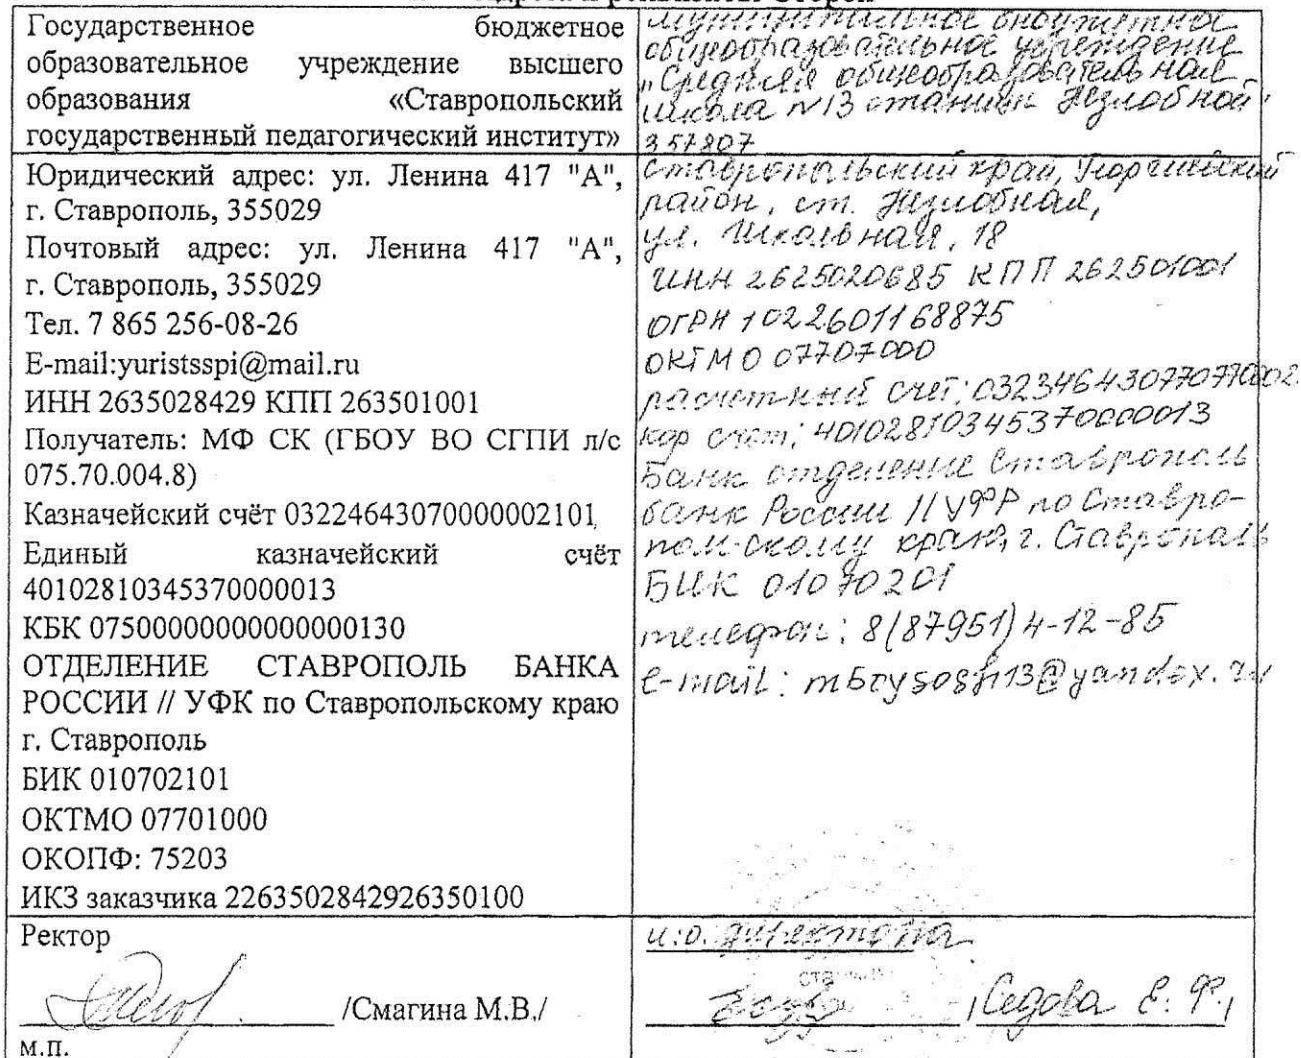 Адреса и реквизиты Сторон
Государственное бюджетное
образовательное учреждение высшего
образования «Ставропольский
государственный педагогический институт»
муниципальное бюджетное
общеобразовательное учреждение
"Средняя общеобразовательная
школа N13 станицы Незлобной"
357807
Юридический адрес: ул. Ленина 417 "А",
г. Ставрополь, 355029
Почтовый адрес: ул. Ленина 417 "А",
г. Ставрополь, 355029
Тел. 7 865 256-08-26
E-mail:yuristsspi@mail.ru
ИНН 2635028429 КПП 263501001
Получатель: МФ СК (ГБОУ ВО СГПИ л/с
075.70.004.8)
Казначейский счёт 03224643070000002101
Единый казначейский счёт
40102810345370000013
КБК 07500000000000000130
ОТДЕЛЕНИЕ СТАВРОПОЛЬ БАНКА
РОССИИ // УФК по Ставропольскому краю
г. Ставрополь
БИК 010702101
ОКТМО 07701000
ОКОПФ: 75203
ИКЗ заказчика 2263502842926350100
Ставропольский край, Георгиевский
район, ст. Незлобная,
ул. Школьная, 18
ИНН 2625020685 КПП 262501001
ОГРН 1022601168875
ОКТМО 07707000
расчетный счет:
кор счет: 40102810345370000013
Банк отделение Ставрополь
банк России // УФР по Ставро-
польскому краю, г. Ставрополь
БИК 01070201
телефон: 8(87951)4-12-85
e-mail:
Ректор
/Смагина М.В./
м.п.
и.о. директора
/Седова Е. Ф./